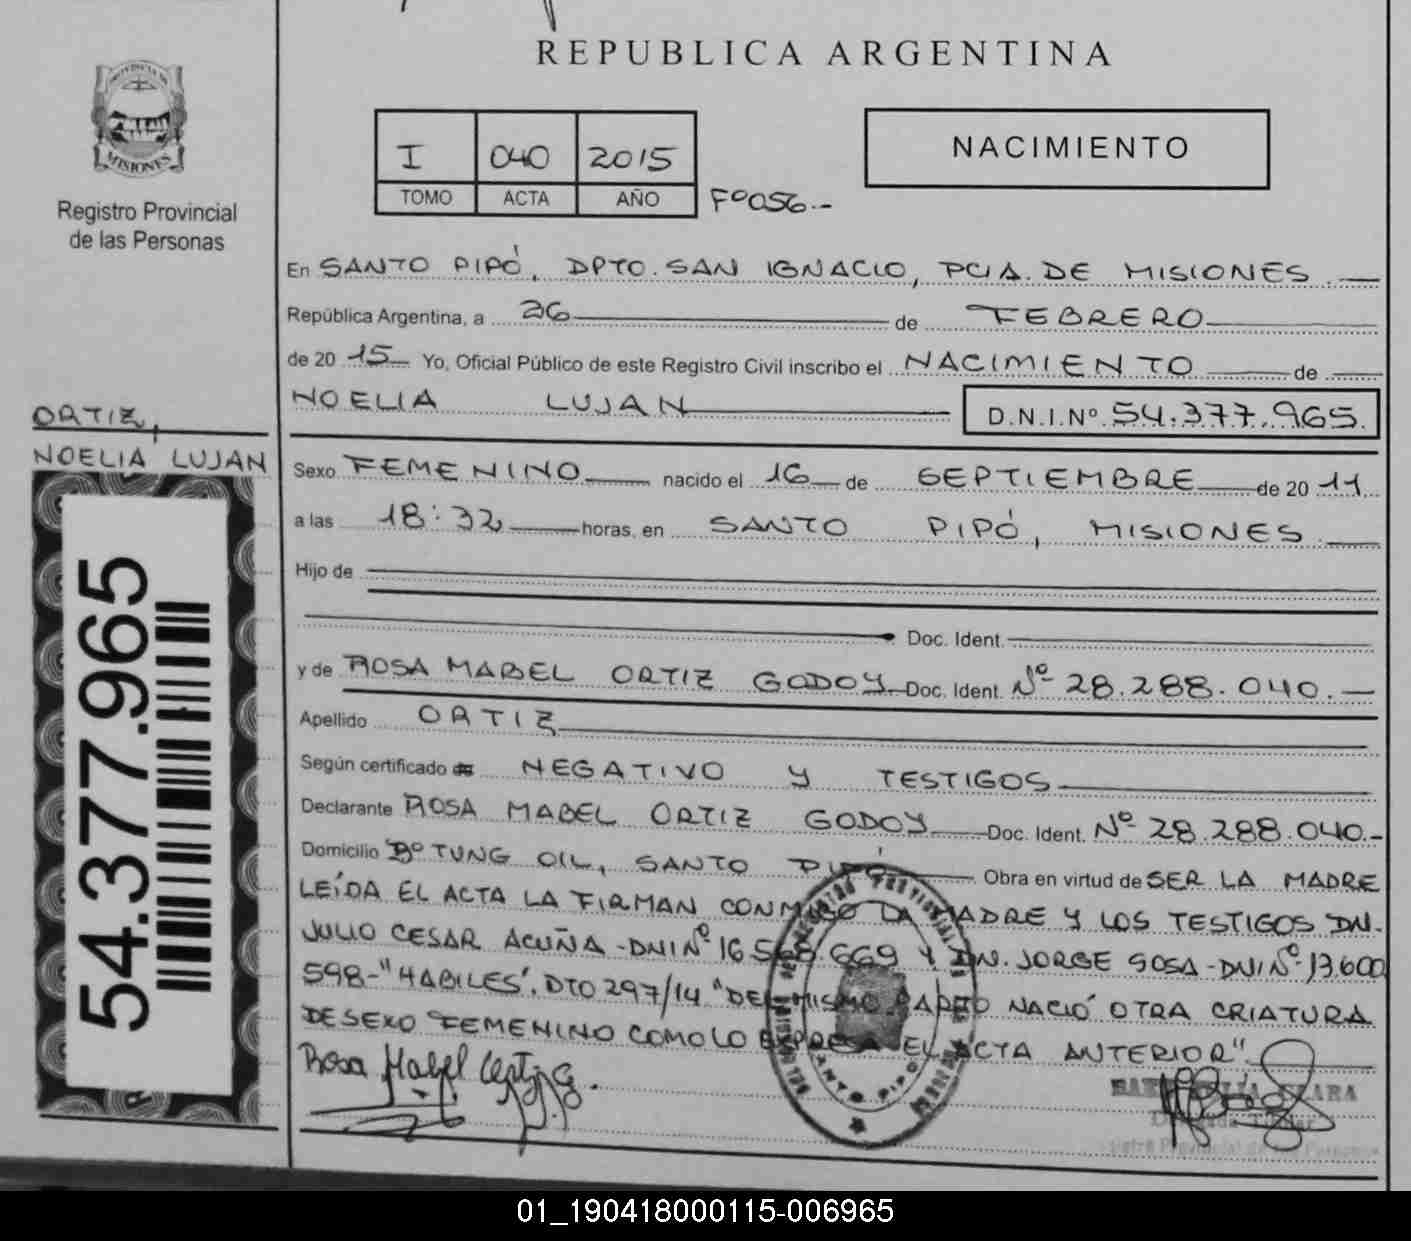 REPUBLICA ARGENTINA
PROVINCIA DE
MISIONES
Registro Provincial
de las Personas
I 040 2015
TOMO ACTA AÑO Fº056.-
NACIMIENTO
En SANTO PIPÓ, DPTO. SAN IGNACIO, PCIA. DE MISIONES.
República Argentina, a 26 de FEBRERO
de 2015 Yo, Oficial Público de este Registro Civil inscribo el NACIMIENTO de
NOELIA LUJAN D.N.I.Nº 54.377.965
ORTIZ,
NOELIA LUJAN
54.377.965
Sexo FEMENINO nacido el 16 de SEPTIEMBRE de 2011
a las 18:32 horas, en SANTO PIPÓ, MISIONES.
Hijo de
Doc. Ident.
y de ROSA MABEL ORTIZ GODOY Doc. Ident. Nº 28.288.040.-
Apellido ORTIZ
Según certificado NEGATIVO Y TESTIGOS
Declarante ROSA MABEL ORTIZ GODOY Doc. Ident. Nº 28.288.040.-
Domicilio Bº TUNG OIL, SANTO PIPÓ Obra en virtud de SER LA MADRE
LEÍDA EL ACTA LA FIRMAN CONMIGO LA MADRE Y LOS TESTIGOS DN.
JULIO CESAR ACUÑA-DNI Nº 16.568.669 Y DN. JORGE SOSA-DNI Nº 13.600
598-"HABILES". DTO 297/14 "DEL MISMO PARTO NACIÓ OTRA CRIATURA
DE SEXO FEMENINO COMO LO EXPRESA EL ACTA ANTERIOR"
Rosa Mabel
SANTO PIPÓ
01_190418000115-006965